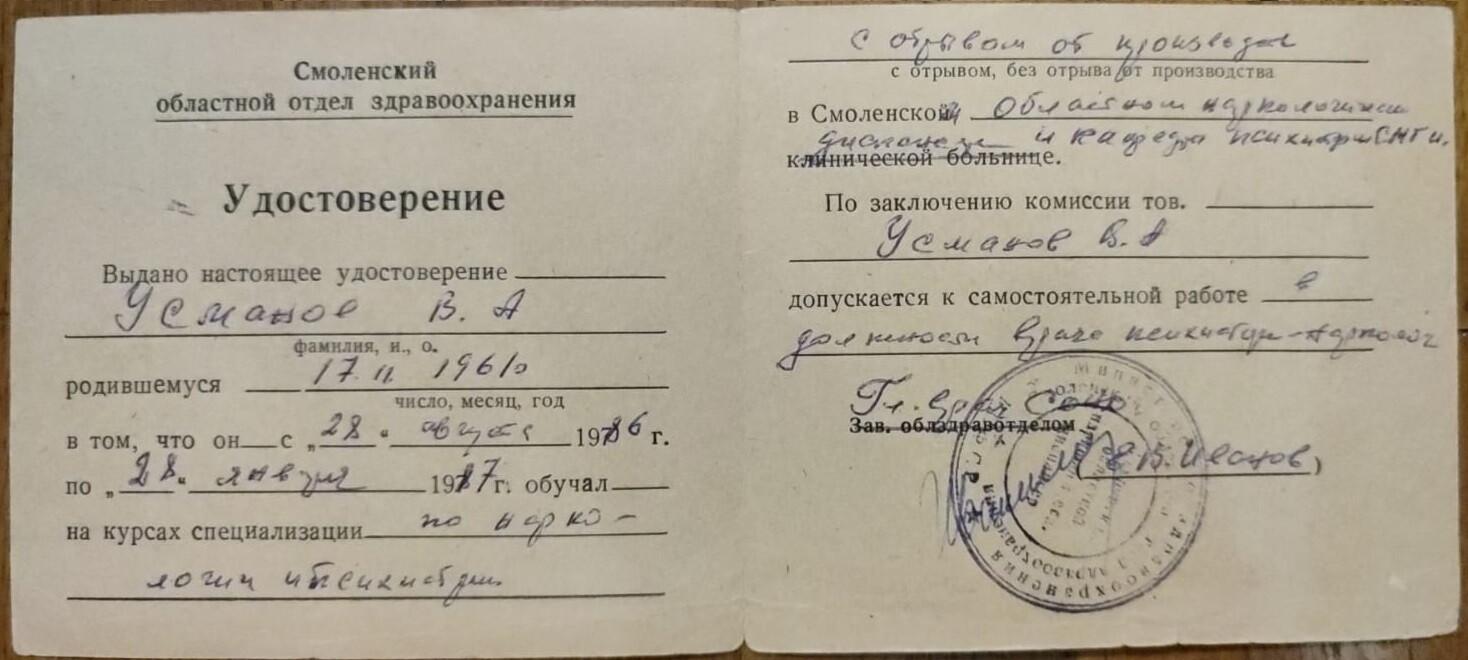 Смоленский
областной отдел здравоохранения
Удостоверение
Выдано настоящее удостоверение
Усманов В. А
фамилия, и., о.
родившемуся 17 II 1961г
число, месяц, год
в том, что он с „28" августа 1986 г.
по „28" января 1987 г. обучал
на курсах специализации по нарко-
логии и психиатрии
с отрывом от производ
с отрывом, без отрыва от производства
в Смоленской Областном наркологическом
диспансере и кафедра психиатрии СГМИ.
клинической больнице.
По заключению комиссии тов.
Усманов В. А
допускается к самостоятельной работе в
должности врача психиатра-нарколог
Гл. врач СОНД
Зав. облздравотделом
(В.В. Иванов)